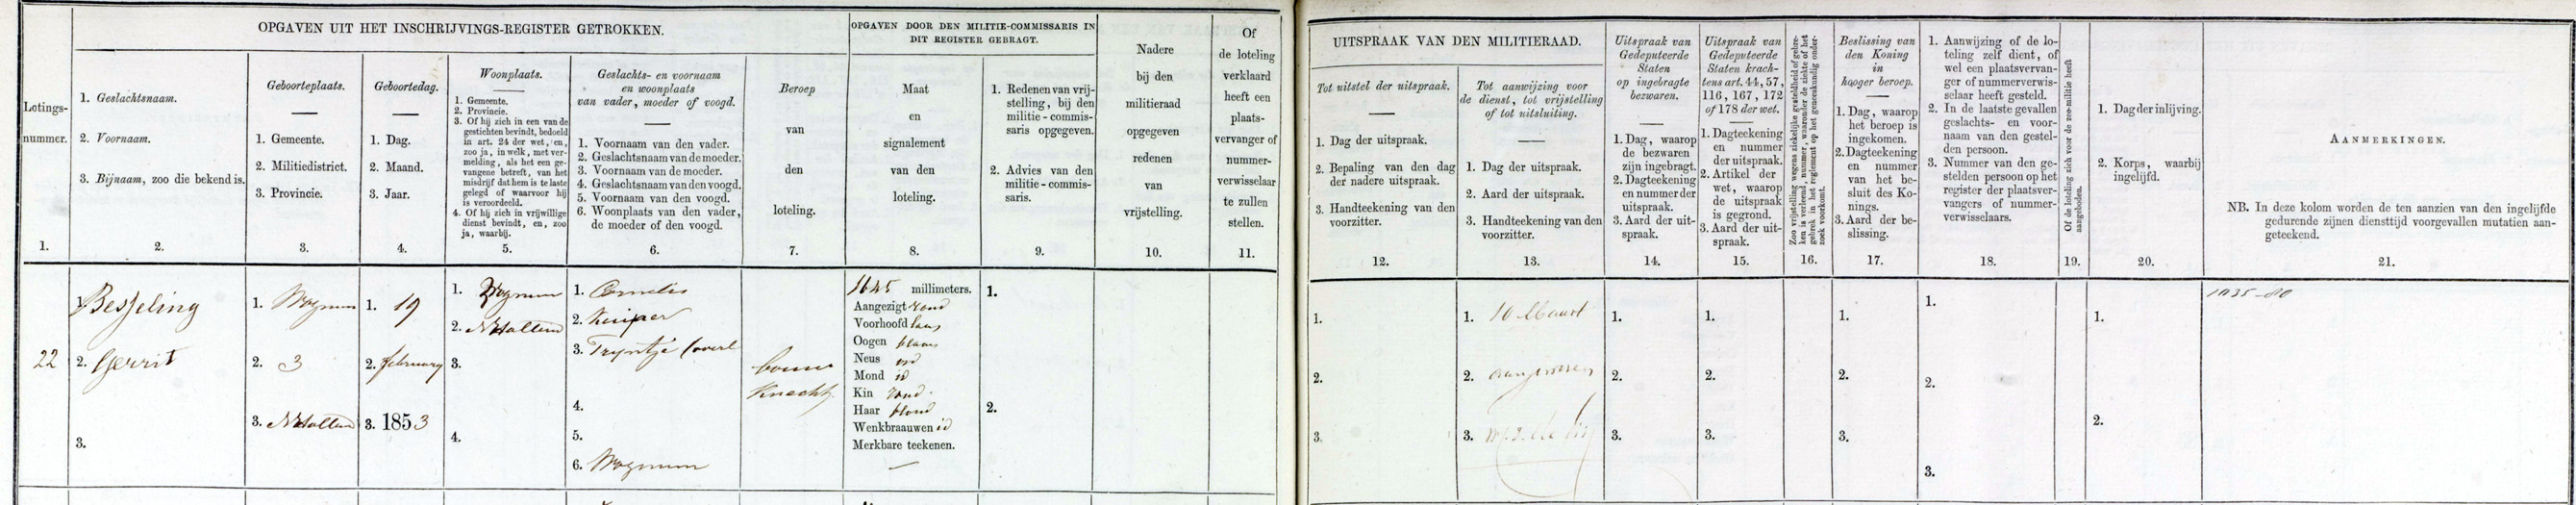 OPGAVEN UIT HET INSCHRIJVINGS-REGISTER GETROKKEN.
Lotings-
nummer.
1.
1. Geslachtsnaam.
2. Voornaam.
3. Bijnaam, zoo die bekend is.
2.
Geboorteplaats.
1. Gemeente.
2. Militiedistrict.
3. Provincie.
3.
Geboortedag.
1. Dag.
2. Maand.
3. Jaar.
4.
Woonplaats.
1. Gemeente.
2. Provincie.
3. Of hij zich in een van de
gestichten bevindt, bedoeld
in art. 24 der wet, en,
zoo ja, in welk, met ver-
melding, als het een ge-
vangene betreft, van het
misdrijf dat hem is te laste
gelegd of waarvoor hij
is veroordeeld.
4. Of hij zich in vrijwillige
dienst bevindt, en, zoo
ja, waarbij.
5.
Geslachts- en voornaam
en woonplaats
van vader, moeder of voogd.
1. Voornaam van den vader.
2. Geslachtsnaam van de moeder.
3. Voornaam van de moeder.
4. Geslachtsnaam van den voogd.
5. Voornaam van den voogd.
6. Woonplaats van den vader,
de moeder of den voogd.
6.
Beroep
van
den
loteling.
7.
OPGAVEN DOOR DEN MILITIE-COMMISSARIS IN
DIT REGISTER GEBRAGT.
Maat
en
signalement
van den
loteling.
8.
1. Redenen van vrij-
stelling, bij den
militie-commis-
saris opgegeven.
2. Advies van den
militie-commis-
saris.
9.
Nadere
bij den
militieraad
opgegeven
redenen
van
vrijstelling.
10.
Of
de loteling
verklaard
heeft een
plaats-
vervanger of
nummer-
verwisselaar
te zullen
stellen.
11.
UITSPRAAK VAN DEN MILITIERAAD.
Tot uitstel der uitspraak.
1. Dag der uitspraak.
2. Bepaling van den dag
der nadere uitspraak.
3. Handteekening van den
voorzitter.
12.
Tot aanwijzing voor
de dienst, tot vrijstelling
of tot uitsluiting.
1. Dag der uitspraak.
2. Aard der uitspraak.
3. Handteekening van den
voorzitter.
13.
Uitspraak van
Gedeputeerde
Staten
op ingebragte
bezwaren.
1. Dag, waarop
de bezwaren
zijn ingebragt.
2. Dagteekening
en nummer der
uitspraak.
3. Aard der uit-
spraak.
14.
Uitspraak van
Gedeputeerde
Staten krach-
tens art. 44, 57,
116, 167, 172
of 178 der wet.
1. Dagteekening
en nummer
der uitspraak.
2. Artikel der
wet, waarop
de uitspraak
is gegrond.
3. Aard der uit-
spraak.
15.
Zoo vrijstelling wegens ziekelijke gesteldheid of gebre-
ken is verleend, nummer, waaronder de ziekte of het
gebrek in het reglement op het geneeskundig onder-
zoek voorkomt.
16.
Beslissing van
den Koning
in
hooger beroep.
1. Dag, waarop
het beroep is
ingekomen.
2. Dagteekening
en nummer
van het be-
sluit des Ko-
nings.
3. Aard der be-
slissing.
17.
1. Aanwijzing of de lo-
teling zelf dient, of
wel een plaatsvervan-
ger of nummerverwis-
selaar heeft gesteld.
2. In de laatste gevallen
geslachts- en voor-
naam van den gestel-
den persoon.
3. Nummer van den ge-
stelden persoon op het
register der plaatsver-
vangers of nummer-
verwisselaars.
18.
Of de loteling zich voor de zee-militie heeft
aangeboden.
19.
1. Dag der inlijving.
2. Korps, waarbij
ingelijfd.
20.
AANMERKINGEN.
NB. In deze kolom worden de ten aanzien van den ingelijfde
gedurende zijnen diensttijd voorgevallen mutatien aan-
geteekend.
21.
22
1. Besseling
2. Gerrit
3.
1. Wognum
2. 3
3. NHolland
1. 19
2. february
3. 1853
1. Wognum
2. NHolland
3.
4.
1. Cornelis
2. Kuiper
3. Trijntje (overl
4.
5.
6. Wognum
bouw
Knecht
1645 millimeters.
Aangezigt rond
Voorhoofd
Oogen blauw
Neus
Mond id
Kin rond
Haar blond
Wenkbraauwen id
Merkbare teekenen.
—
1.
2.
1.
2.
3.
1. 10 Maart
2. aangewezen
3.
1.
2.
3.
1.
2.
3.
1.
2.
3.
1.
2.
3.
1.
2.